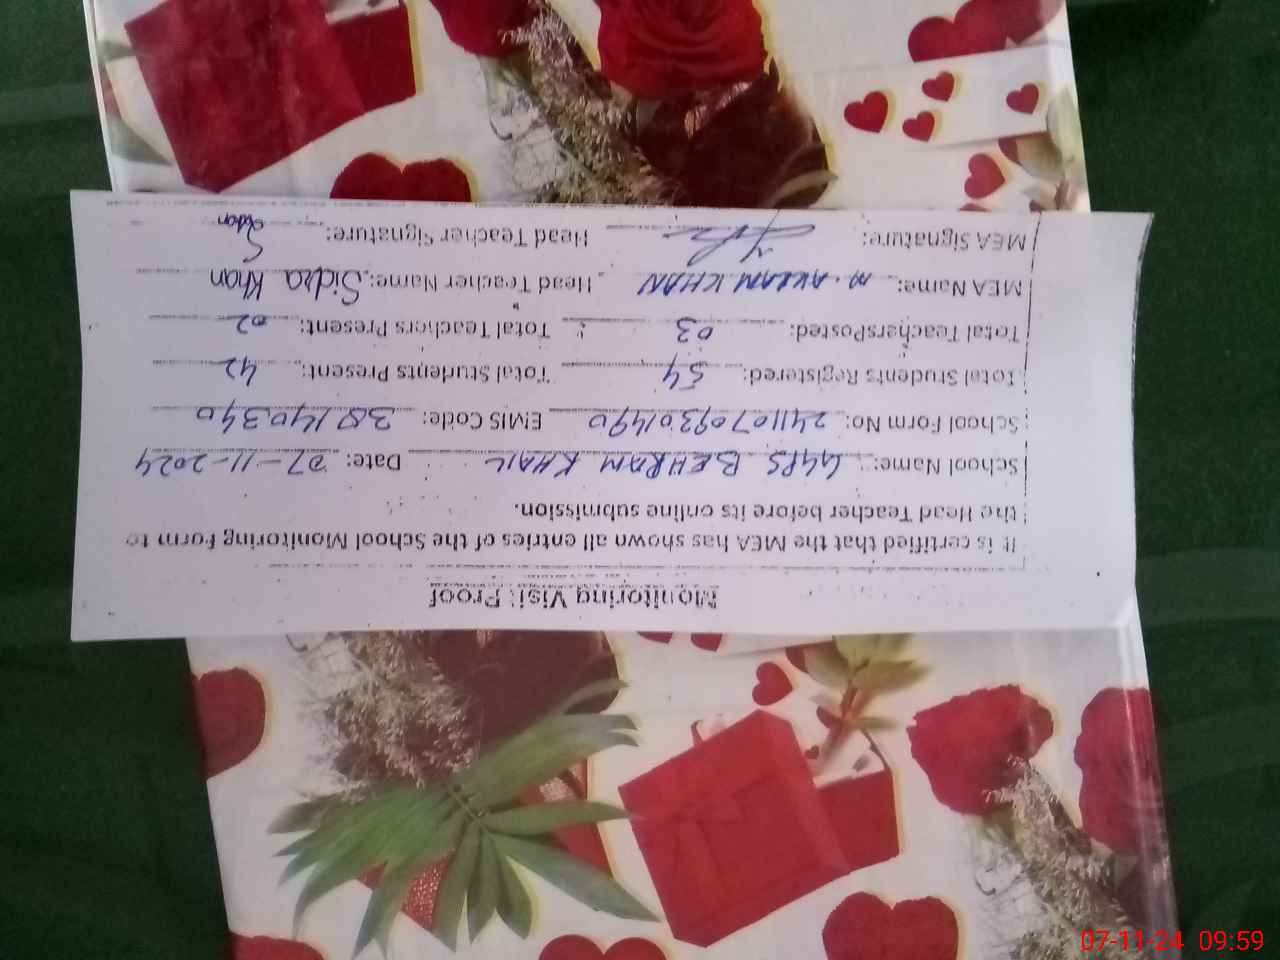 Monitoring Visit Proof
It is certified that the MEA has shown all entries of the School Monitoring Form to
the Head Teacher before its online submission.
School Name: GGPS BEHRAM KHAIL Date: 07-11-2024
School Form No: 24110709301490 EMIS Code: 38140340
Total Students Registered: 54 Total Students Present: 42
Total TeachersPosted: 03 Total Teachers Present: 02
MEA Name: M. AKRAM KHAN Head Teacher Name: Sidra Khan
MEA Signature: Head Teacher Signature:
07-11-24 09:59